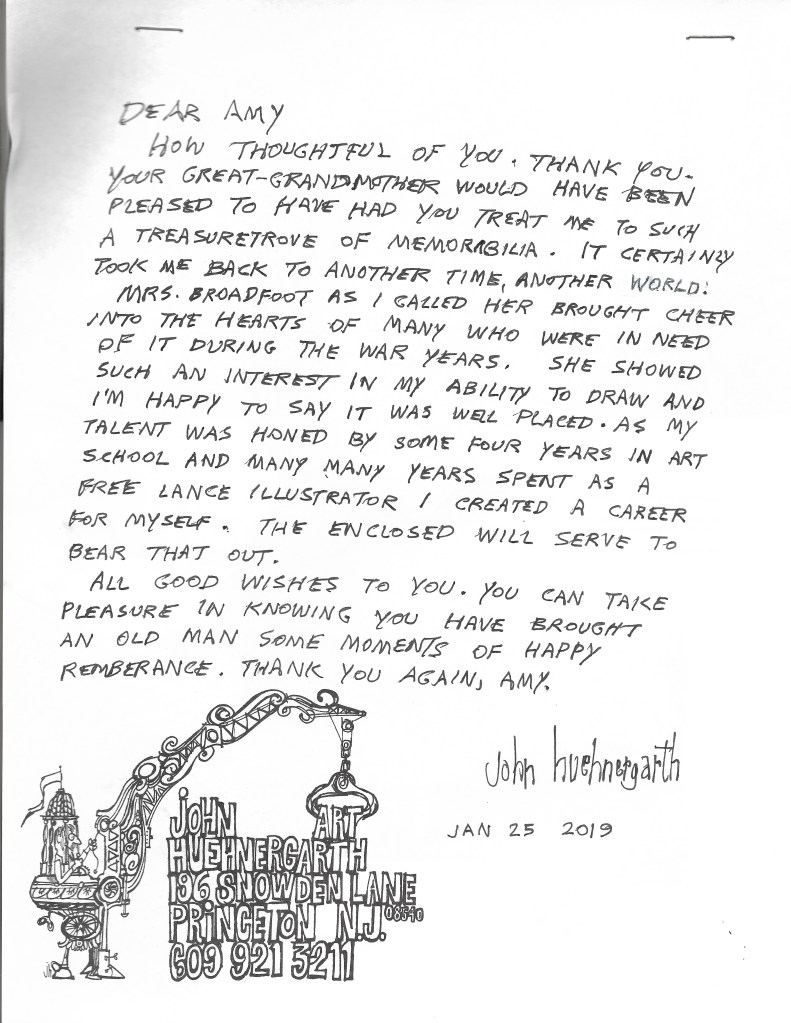 DEAR AMY
HOW THOUGHTFUL OF YOU. THANK YOU-
YOUR GREAT-GRANDMOTHER WOULD HAVE BEEN
PLEASED TO HAVE HAD YOU TREAT ME TO SUCH
A TREASURETROVE OF MEMORABILIA. IT CERTAINLY
TOOK ME BACK TO ANOTHER TIME, ANOTHER WORLD.
MRS. BROADFOOT AS I CALLED HER BROUGHT CHEER
INTO THE HEARTS OF MANY WHO WERE IN NEED
OF IT DURING THE WAR YEARS. SHE SHOWED
SUCH AN INTEREST IN MY ABILITY TO DRAW AND
I'M HAPPY TO SAY IT WAS WELL PLACED. AS MY
TALENT WAS HONED BY SOME FOUR YEARS IN ART
SCHOOL AND MANY MANY YEARS SPENT AS A
FREE LANCE ILLUSTRATOR I CREATED A CAREER
FOR MYSELF. THE ENCLOSED WILL SERVE TO
BEAR THAT OUT.
ALL GOOD WISHES TO YOU. YOU CAN TAKE
PLEASURE IN KNOWING YOU HAVE BROUGHT
AN OLD MAN SOME MOMENTS OF HAPPY
REMBERANCE. THANK YOU AGAIN, AMY.
john huehnergarth
JAN 25 2019
JOHN ART
HUEHNERGARTH
196 SNOWDEN LANE
PRINCETON N.J. 08540
609 921 3211